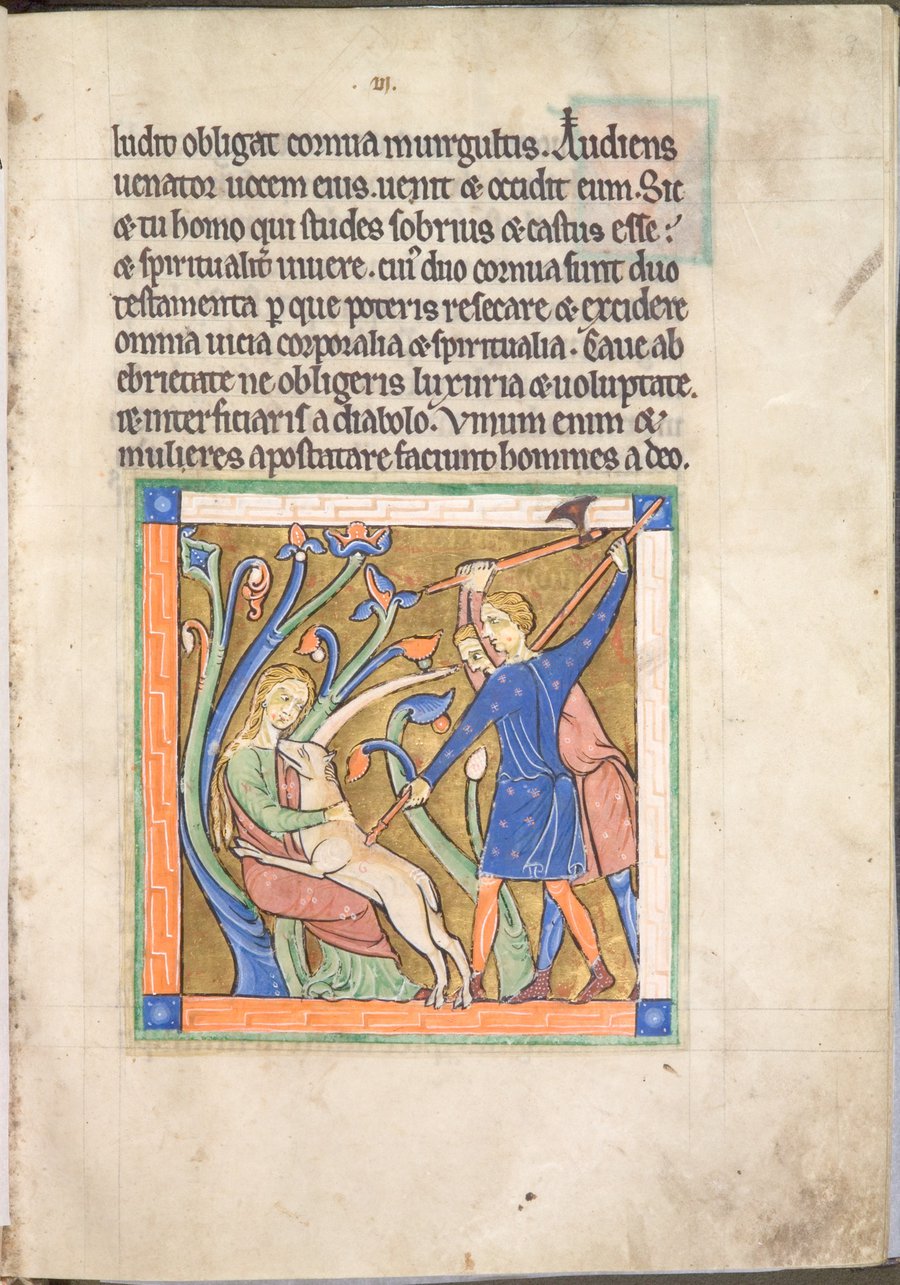 .VI.
ludit obligat cornua in uirgultis. Audiens
uenator uocem eius. uenit & occidit eum. Sic
& tu homo qui studes sobrius & castus esse:
& spiritualit̃ uiuere. cui᷒ duo cornua sunt duo
testamenta ꝑ que poteris resecare & excidere
omnia uicia corporalia & spiritualia. Caue ab
ebrietate ne obligeris luxuria & uoluptate.
& interficiaris a diabolo. Vinum enim &
mulieres apostatare faciunt homines a deo.